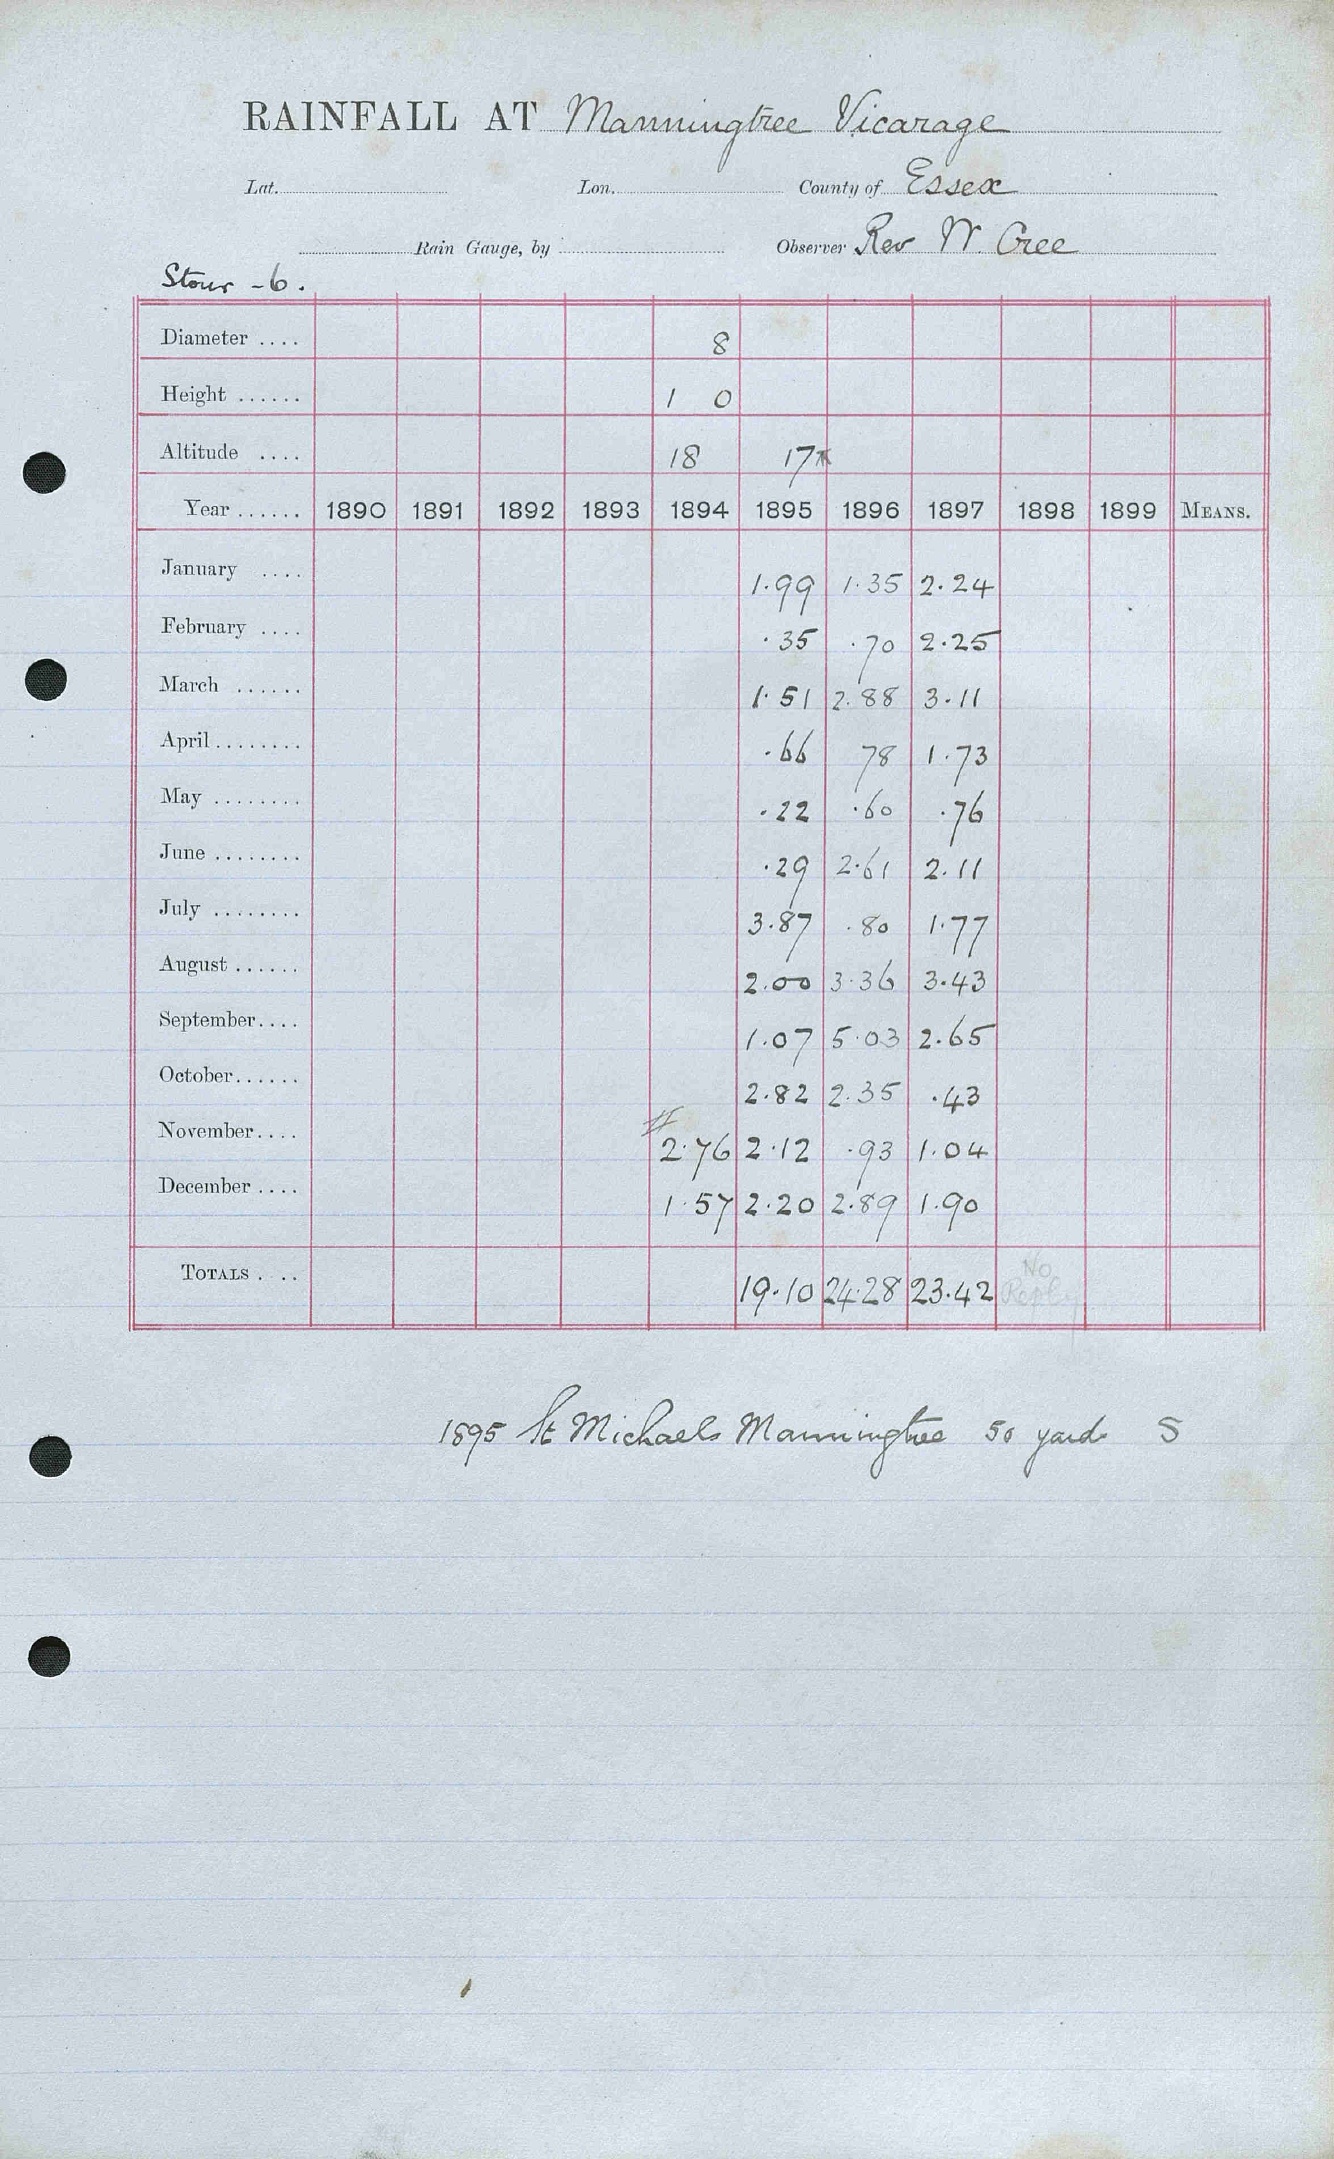 RAINFALL AT Manningtree Vicarage
Lat. Lon. County of Essex
Rain Gauge, by Observer Rev W. Cree
Stour - 6.
Diameter .... 8
Height ...... 1 0
Altitude .... 18 17*
Year ...... 1890 1891 1892 1893 1894 1895 1896 1897 1898 1899 MEANS.
January .... 1.99 1.35 2.24
February .... .35 .70 2.25
March ...... 1.51 2.88 3.11
April ........ .66 78 1.73
May ........ .22 .60 .76
June ........ .29 2.61 2.11
July ........ 3.87 .80 1.77
August ...... 2.00 3.36 3.43
September.... 1.07 5.03 2.65
October...... 2.82 2.35 .43
November.... # 2.76 2.12 .93 1.04
December .... 1.57 2.20 2.89 1.90
TOTALS . .. 19.10 24.28 23.42 No Reply
1895 St Michaels Manningtree 50 yards S